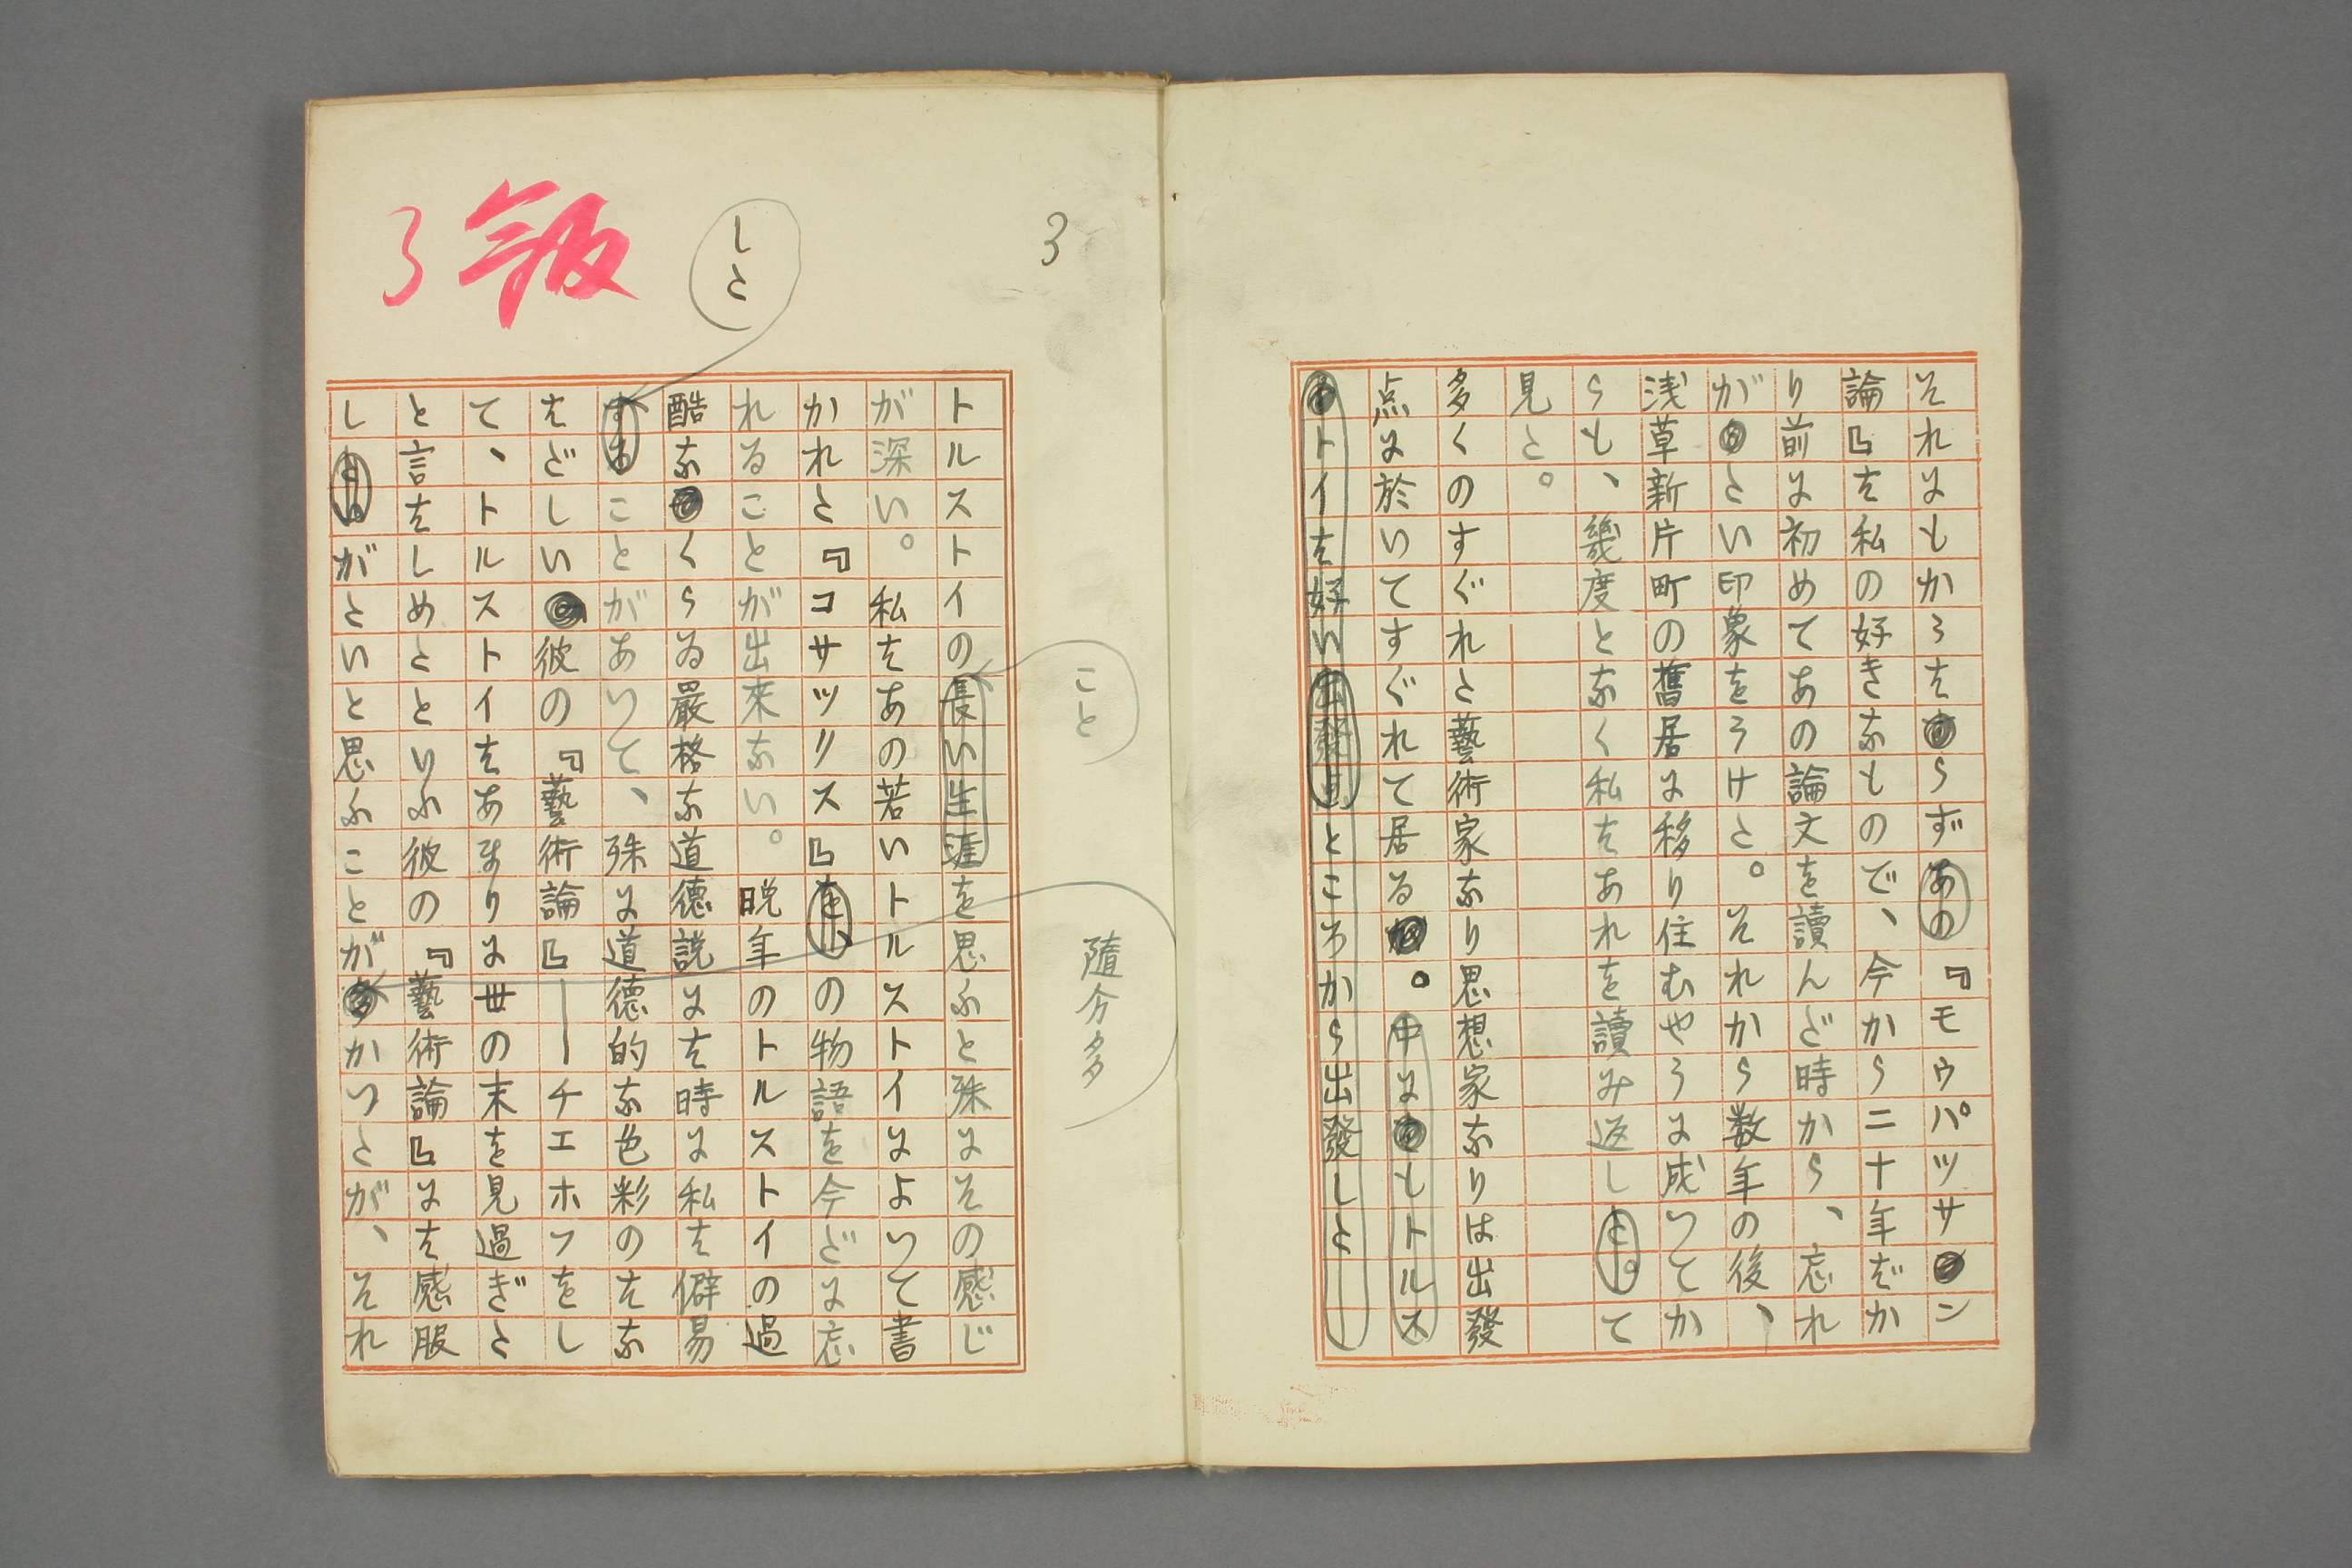 それにもかゝはらずあの『モウパツサン
論』は私の好きなもので、今から二十年ばか
り前に初めてあの論文を讀んだ時から、忘れ
がたい印象をうけた。それから数年の後、
浅草新片町の舊居に移り住むやうに成つてか
らも、幾度となく私はあれを讀み返した。て
見た。
多くのすぐれた藝術家なり思想家なりは出發
点に於いてすぐれて居る。中にもトルス
トイは好い出發点ところから出發した
3
こと
隨分多
した
3級
トルストイの長い生涯を思ふと殊にその感じ
が深い。私はあの若いトルストイによつて書
かれた『コサツクス』を、の物語を今だに忘
れることが出來ない。晩年のトルストイの過
酷なくらゐ嚴格な道徳説には時に私は僻易
することがあつて、殊に道徳的な色彩のはな
はだしい彼の『藝術論』——チエホフをし
て、トルストイはあまりに世の末を見過ぎた
と言はしめたといふ彼の『藝術論』には感服
しがたいと思ふことが多かつたが、それ